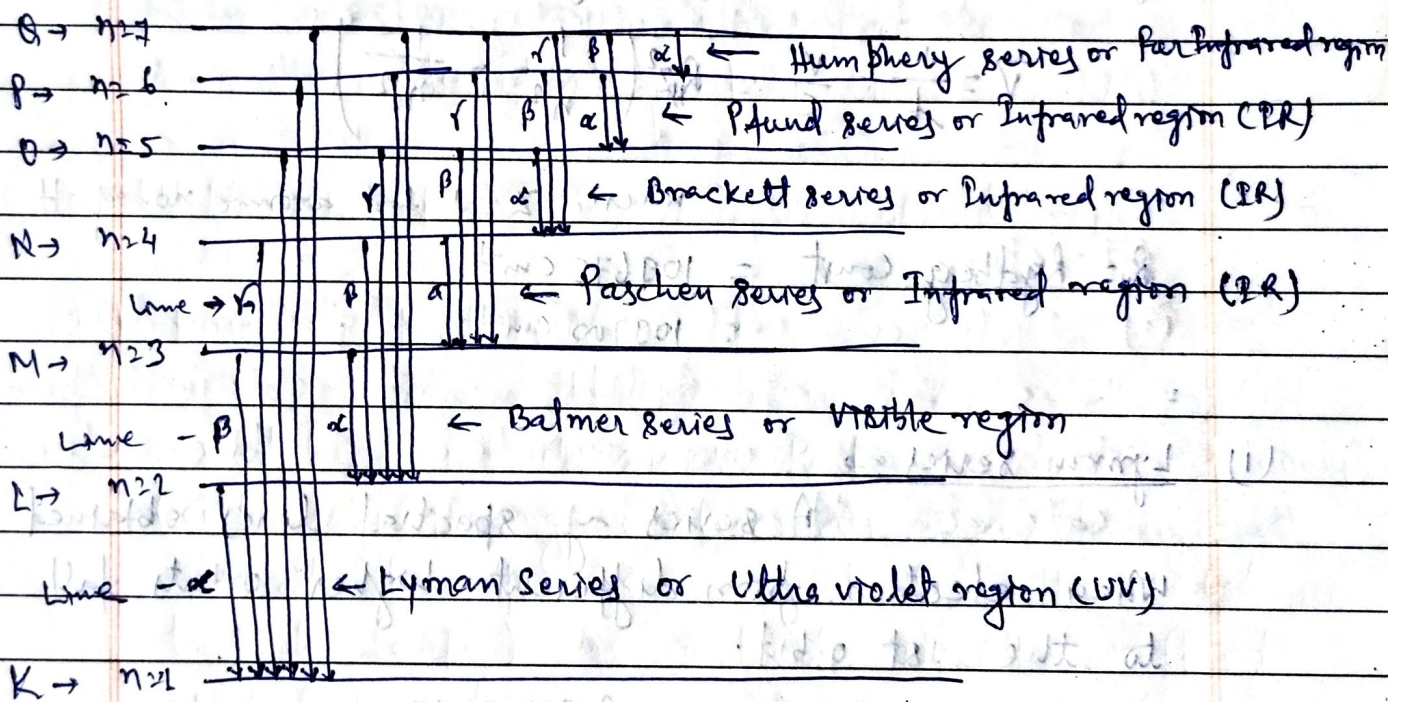 Q → n=7 γ β α ← Humphery series or Far Infrared region
P → n= 6 γ β α ← Pfund series or Infrared region (IR)
O → n=5 γ β α ← Brackett series or Infrared region (IR)
N → n=4
Line → γ β α ← Paschen series or Infrared region (IR)
M → n=3
Line - β α ← Balmer series or Visible region
L → n=2
Line - α ← Lyman Series or Ultra violet region (UV)
K → n=1